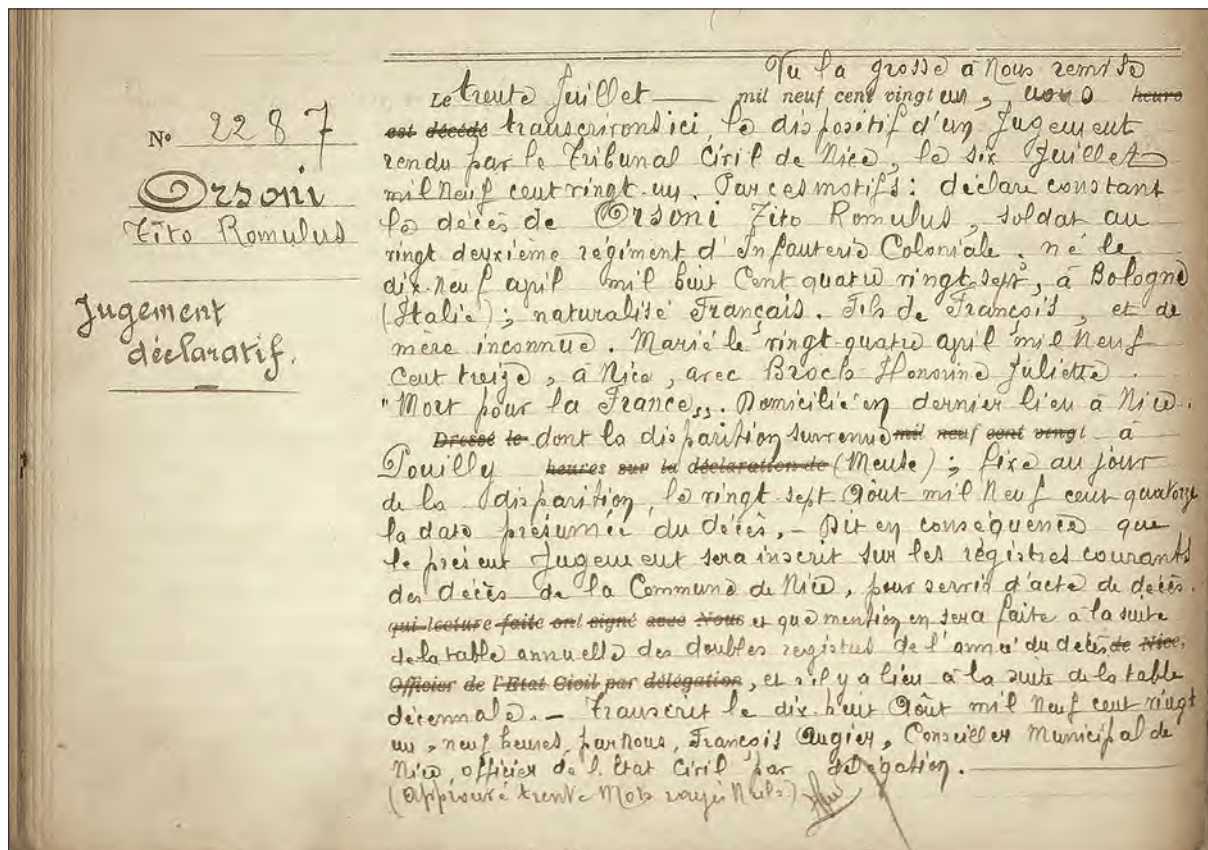 N° 2287
Orsoni
Tito Romulus
Jugement
déclaratif.
Vu la grosse à Nous remise
Le trente Juillet — mil neuf cent vingt un, nous heure
est décédé transcrirons ici, le dispositif d'un Jugement
rendu par le Tribunal Civil de Nice, le six Juillet
mil Neuf cent vingt-un. Par ces motifs : déclare constant
le décès de Orsoni Tito Romulus, soldat au
vingt deuxième régiment d'Infanterie Coloniale, né le
dix-neuf april mil huit Cent quatre vingt sept, à Bologne
(Italie) ; naturalisé Français. Fils de François, et de
mère inconnue. Marié le vingt-quatre april mil Neuf
Cent treize, à Nice, avec Broch Honorine Juliette.
"Mort pour la France,,. Domicilié en dernier lieu à Nice.
Dressé le dont la disparition survenue mil neuf cent vingt à
Pouilly heures sur la déclaration de (Meuse) ; fixe au jour
de la disparition, le vingt sept Août mil Neuf cent quatorze
la date présumée du décès, - Dit en conséquence que
le présent Jugement sera inscrit sur les régistres courants
des décès de la Commune de Nice, pour servir d'acte de décès.
qui lecture faite ont signé avec Nous et que mention en sera faite à la suite
de la table annuelle des doubles registres de l'année du décès de Nice,
Officier de l'Etat Civil par délégation, et s'il y a lieu à la suite de la table
décennale. - Transcrit le dix huit Août mil Neuf cent vingt
un, neuf heures, par nous, François Augier, Conseiller Municipal de
Nice, officier de l'Etat Civil par délégation.
(Approuvé trente Mots rayés Nuls)